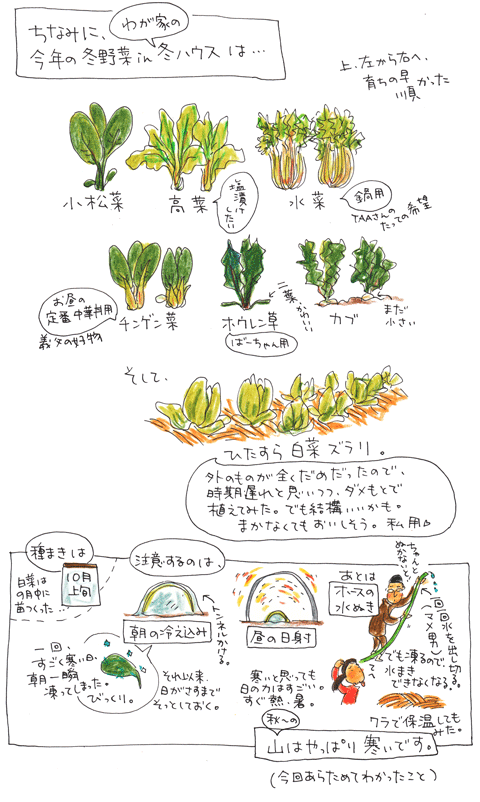 ちなみに、わが家の
今年の冬野菜in冬ハウスは…
上、左から右へ、
育ちの早かった
順
小松菜
高菜
塩漬け
したい
水菜
鍋用
TAAさんの
たっての希望
チンゲン菜
お昼の
定番中華料用
義父の好物
ホウレン草
ばーちゃん用
二葉、かわいい
カブ
まだ
小さい
そして、
ひたすら白菜ズラリ。
外のものが全くだめだったので、
時期遅れと思いつつ、ダメもとで
植えてみた。でも結構いいかも。
まかなくてもおいしそう。私用
種まきは
10月
上旬
白菜は
9月中に
苗つくった
注意するのは、
朝の冷え込み
トンネルかける。
一回、
すごく寒い日、
朝一瞬
凍ってしまった。
びっくり。
それ以来、
日がさすまで
そっとしておく。
昼の日射
寒いと思っても
日の力はすごい。
すぐ熱、暑。
あとは
ホースの
水ぬき
ちゃんと
ぬかないと!
一回一回水を出し切る。
(マメ男)
でも凍るので、
水まき
できなくなる。
ワラで保温しても
みた。
秋〜の
山はやっぱり寒いです。
(今回あらためてわかったこと)